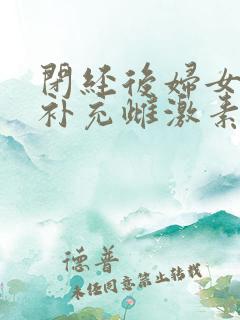 閉経後婦女
补充雌激素
德普
未经同意禁止转载